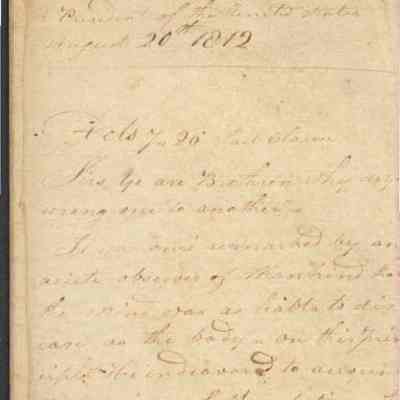 President of the United States
August 20th 1812
Acts 7. 26 last clause
Sirs Ye are Brethren why do ye
wrong one to another
It was once remarked by an
acute observer of Mankind
the mind was as liable to dis
ease as the body on this prin
ciple he endeavored to accoun